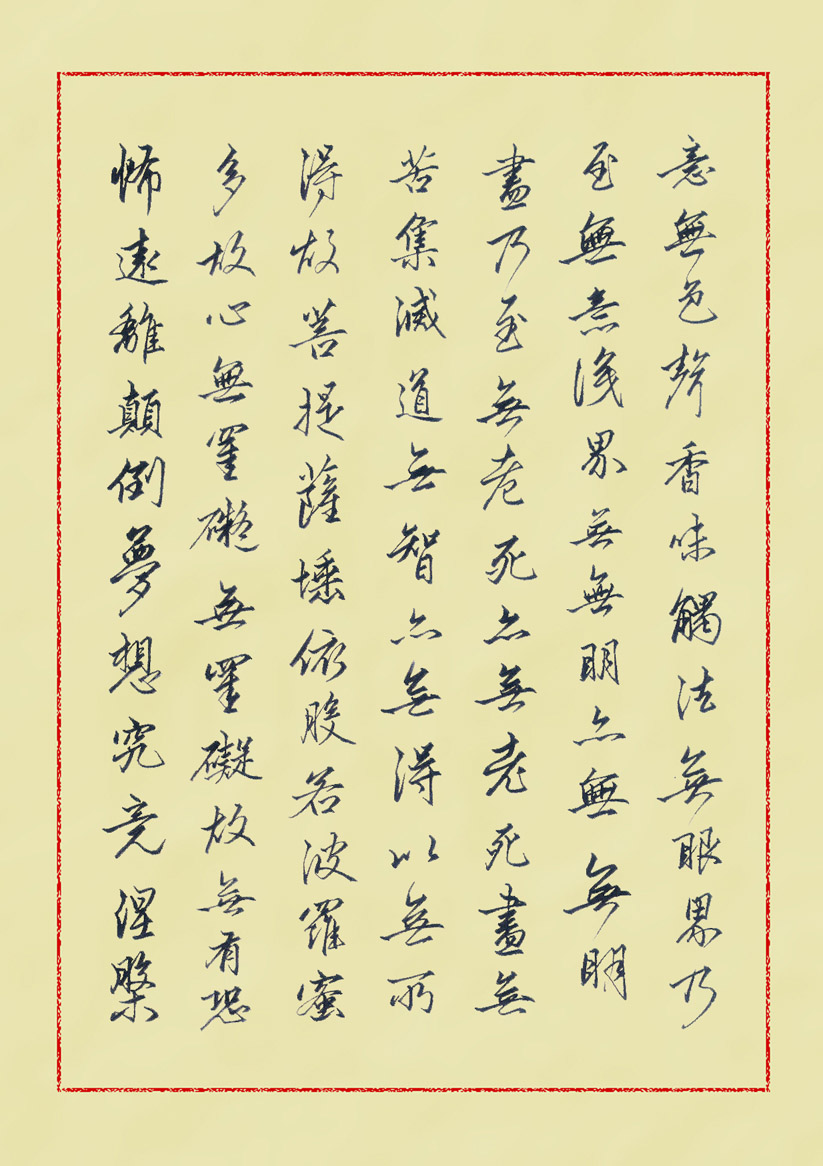 意無色聲香味觸法無眼界乃
至無意識界無無明亦無無明
盡乃至無老死亦無老死盡無
苦集滅道無智亦無得以無所
得故菩提薩埵依般若波羅蜜
多故心無罣礙無罣礙故無有恐
怖遠離顛倒夢想究竟涅槃